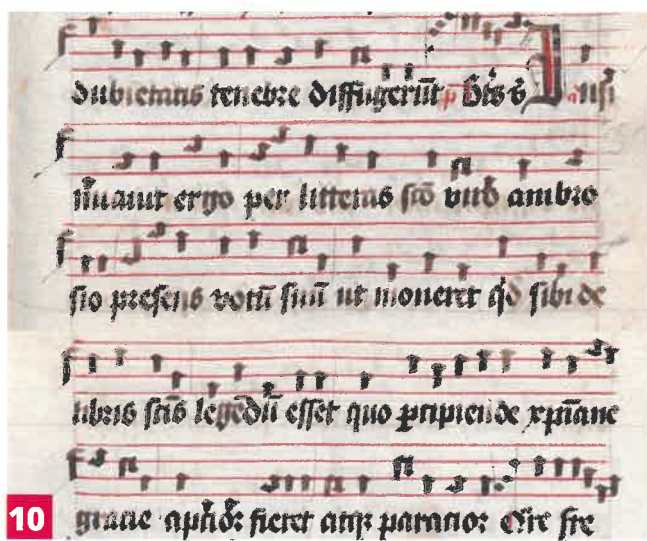 dubietatis tenebre diffugerūt p̄ Bīs ẜ Insi
n̄uauit ergo per litteras sc̄o viro ambro
sio presens votū suū ut moneret qd̄ sibi de
libris sc̄is legēdū esset quo ꝑcipiende xp̄iane
gracie apcīor fieret atqꝫ paracior Q̄re fre
10